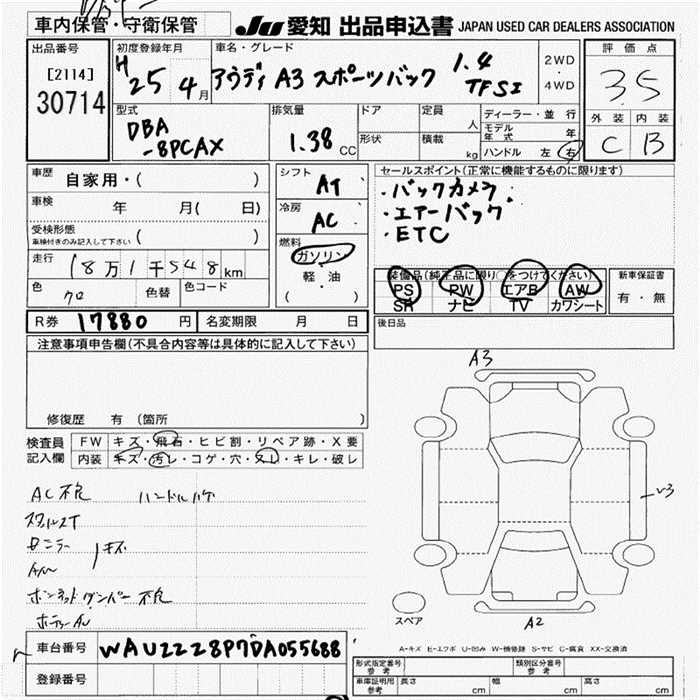 車内保管・守衛保管
JU 愛知 出品申込書 JAPAN USED CAR DEALERS ASSOCIATION
出品番号
[2114]
30714
初度登録年月
H25 4月
車名・グレード
アウディ A3 スポーツバック 1.4 TFSI
2WD
・
4WD
評価点
3.5
外装 内装
C B
型式
DBA
-8PCAX
排気量
1.38 CC
ドア
定員
人
形状
積載
kg
ディーラー・並行
モデル年式 年
ハンドル 左 右
車歴
自家用・( )
車検 年 月( 日)
受検形態
車検付きのみ記入して下さい ( )
走行
18万1千548km
色
クロ
色替
色コード
シフト
AT
冷房
AC
燃料
ガソリン
軽・油
( )
セールスポイント(正常に機能するものに限ります)
・バックカメラ
・エアーバック
・ETC
装備品(純正品に限り○をつけてください)
PS PW エアB AW
SR ナビ TV カワシート
新車保証書
有・無
R券 17880 円
名変期限 月 日
後日品
注意事項申告欄(不具合内容等は具体的に記入して下さい)
修復歴 有 (箇所 )
検査員
記入欄
FW キズ・飛石・ヒビ割・リペア跡・X要
内装 キズ・汚レ・コゲ・穴・スレ・キレ・破レ
AC不良 ハンドルハゲ
スタルスT
キズ
ボンネットダンパー 不良
A3
A2
スペア
A-キズ E-エクボ U-凹み W-補修跡 S-サビ C-腐食 XX-交換済
車台番号
WAUZZZ8P7DA055688
登録番号
形式指定番号
参考
類別区分番号
参考
車庫証明用
参考
長さ cm 幅 cm 高さ cm